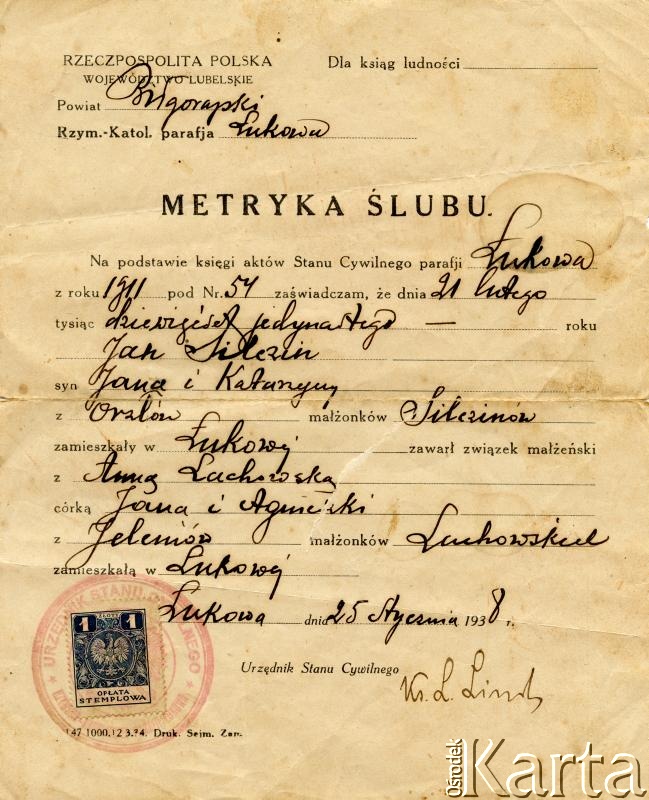 RZECZPOSPOLITA POLSKA
WOJEWÓDZTWO LUBELSKIE
Dla ksiąg ludności
Powiat Biłgorajski
Rzym.-Katol. parafja Łukowa
METRYKA ŚLUBU.
Na podstawie księgi aktów Stanu Cywilnego parafji Łukowa
z roku 1911 pod Nr. 54 zaświadczam, że dnia 21 lutego
tysiąc dziewięćset jedynastego — roku
Jan
syn Jana i Katarzyny
z małżonków
zamieszkały w Łukowej zawarł związek małżeński
z Anną Lachowską
córką Jana i Agnieszki
z Jeleniów małżonków Lachowskich
zamieszkałą w Łukowej
Łukowa dnia 25 Stycznia 1938 r.
Urzędnik Stanu Cywilnego
Ks. L.
URZĘDNIK STANU
ZŁOTY
1 1
OPŁATA
STEMPLOWA
147 1000.12 3.34. Druk. Sejm. Zam.
Ośrodek
Karta